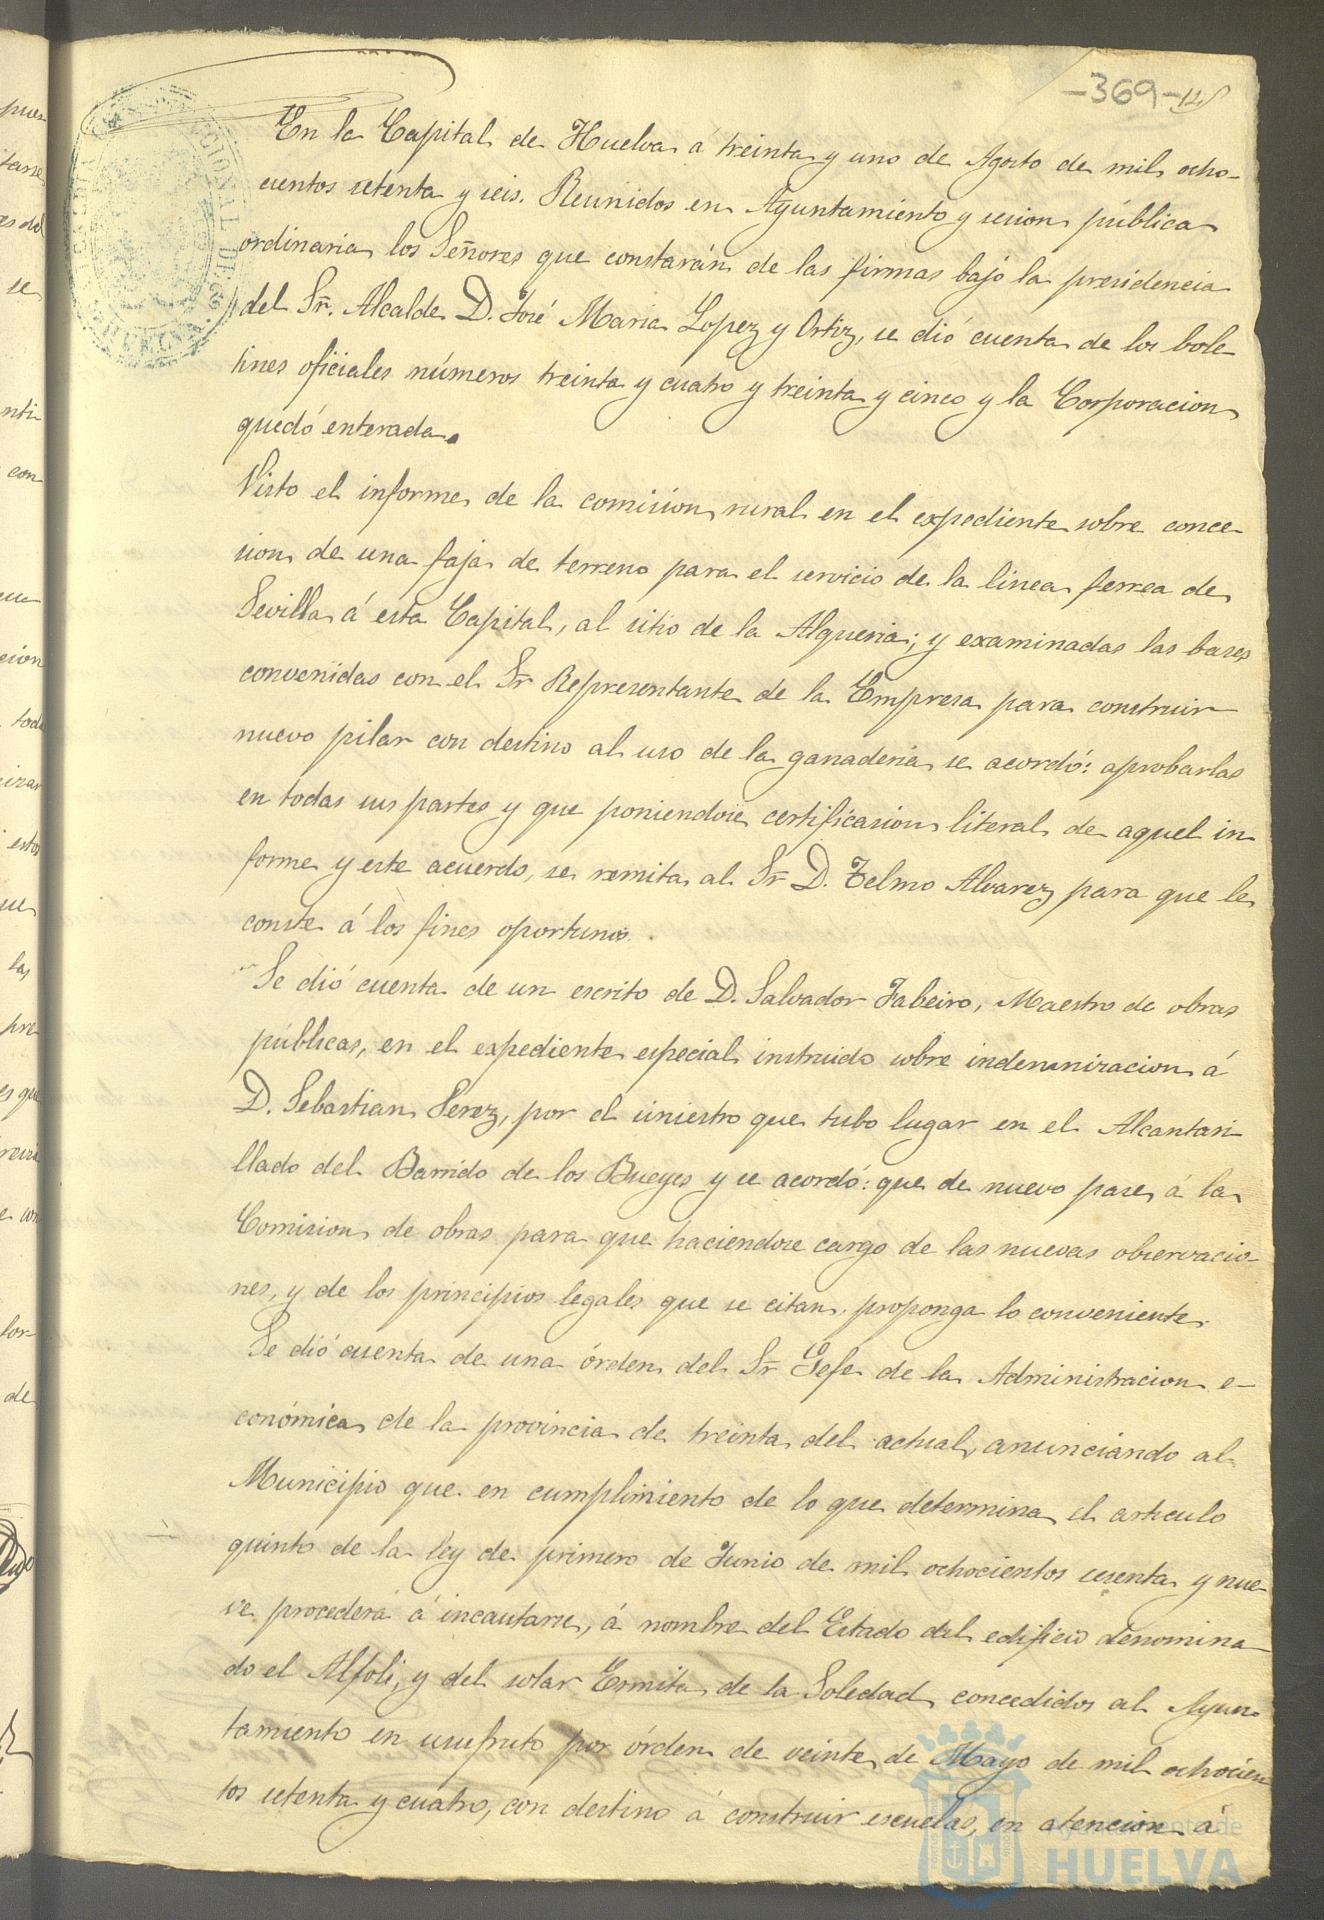 -369- 128
En la Capital de Huelva á treinta y uno de Agosto de mil ocho-
cientos setenta y seis. Reunidos en Ayuntamiento y sesion pública
ordinaria los Señores que constarán de las firmas bajo la presidencia
del Sr. Alcalde D. José Maria Lopez y Ortiz, se dió cuenta de los bole-
tines oficiales números treinta y cuatro y treinta y cinco y la Corporacion
quedó enterada.
Visto el informe de la comision rural en el expediente sobre conce-
sion de una faja de terreno para el servicio de la linea ferrea de
Sevilla á esta Capital, al sitio de la Alqueria; y examinadas las bases
convenidas con el Sr Representante de la Empresa para construir
nuevo pilar con destino al uso de la ganaderia se acordó: aprobarlas
en todas sus partes y que poniendose certificasion literal de aquel in
forme y este acuerdo, se remita al Sr D. Telmo Alvarez para que le
conste á los fines oportunos.
Se dió cuenta de un escrito de D. Salvador Fabeiro, Maestro de obras
públicas, en el expediente especial instruido sobre indemnizacion á
D. Sebastian Perez, por el siniestro que tubo lugar en el Alcantari
llado del Barrido de los Bueyes y se acordó: que de nuevo pase á la
Comision de obras para que haciendose cargo de las nuevas observacio-
nes, y de los principios legales que se citan, proponga lo conveniente.
Se dió cuenta de una órden del Sr Gefe de la Administracion e-
conómica de la provincia de treinta del actual, anunciando al
Municipio que en cumplimiento de lo que determina el articulo
quinto de la ley de primero de Junio de mil ochocientos sesenta y nue-
ve procederá á incautarse, á nombre del Estado del edificio denomina
do el Alfoli, y del solar Ermita de la Soledad, concedidos al Ayun-
tamiento en usufruto por órden de veinte de Mayo de mil ochocien
tos setenta y cuatro, con destino á construir escuelas, en atencion á
Ayuntamiento de
HUELVA